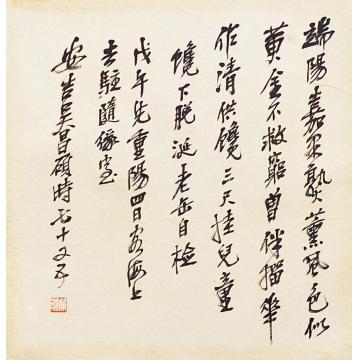 端陽嘉果熟薰風色似
黃金不救窮曾伴榴華
作清供饞三尺挂兒童
饞下脫涎老缶自檢
戊午先重陽四日客海上
去駐隨緣室
安吉吳昌碩時年七十又五